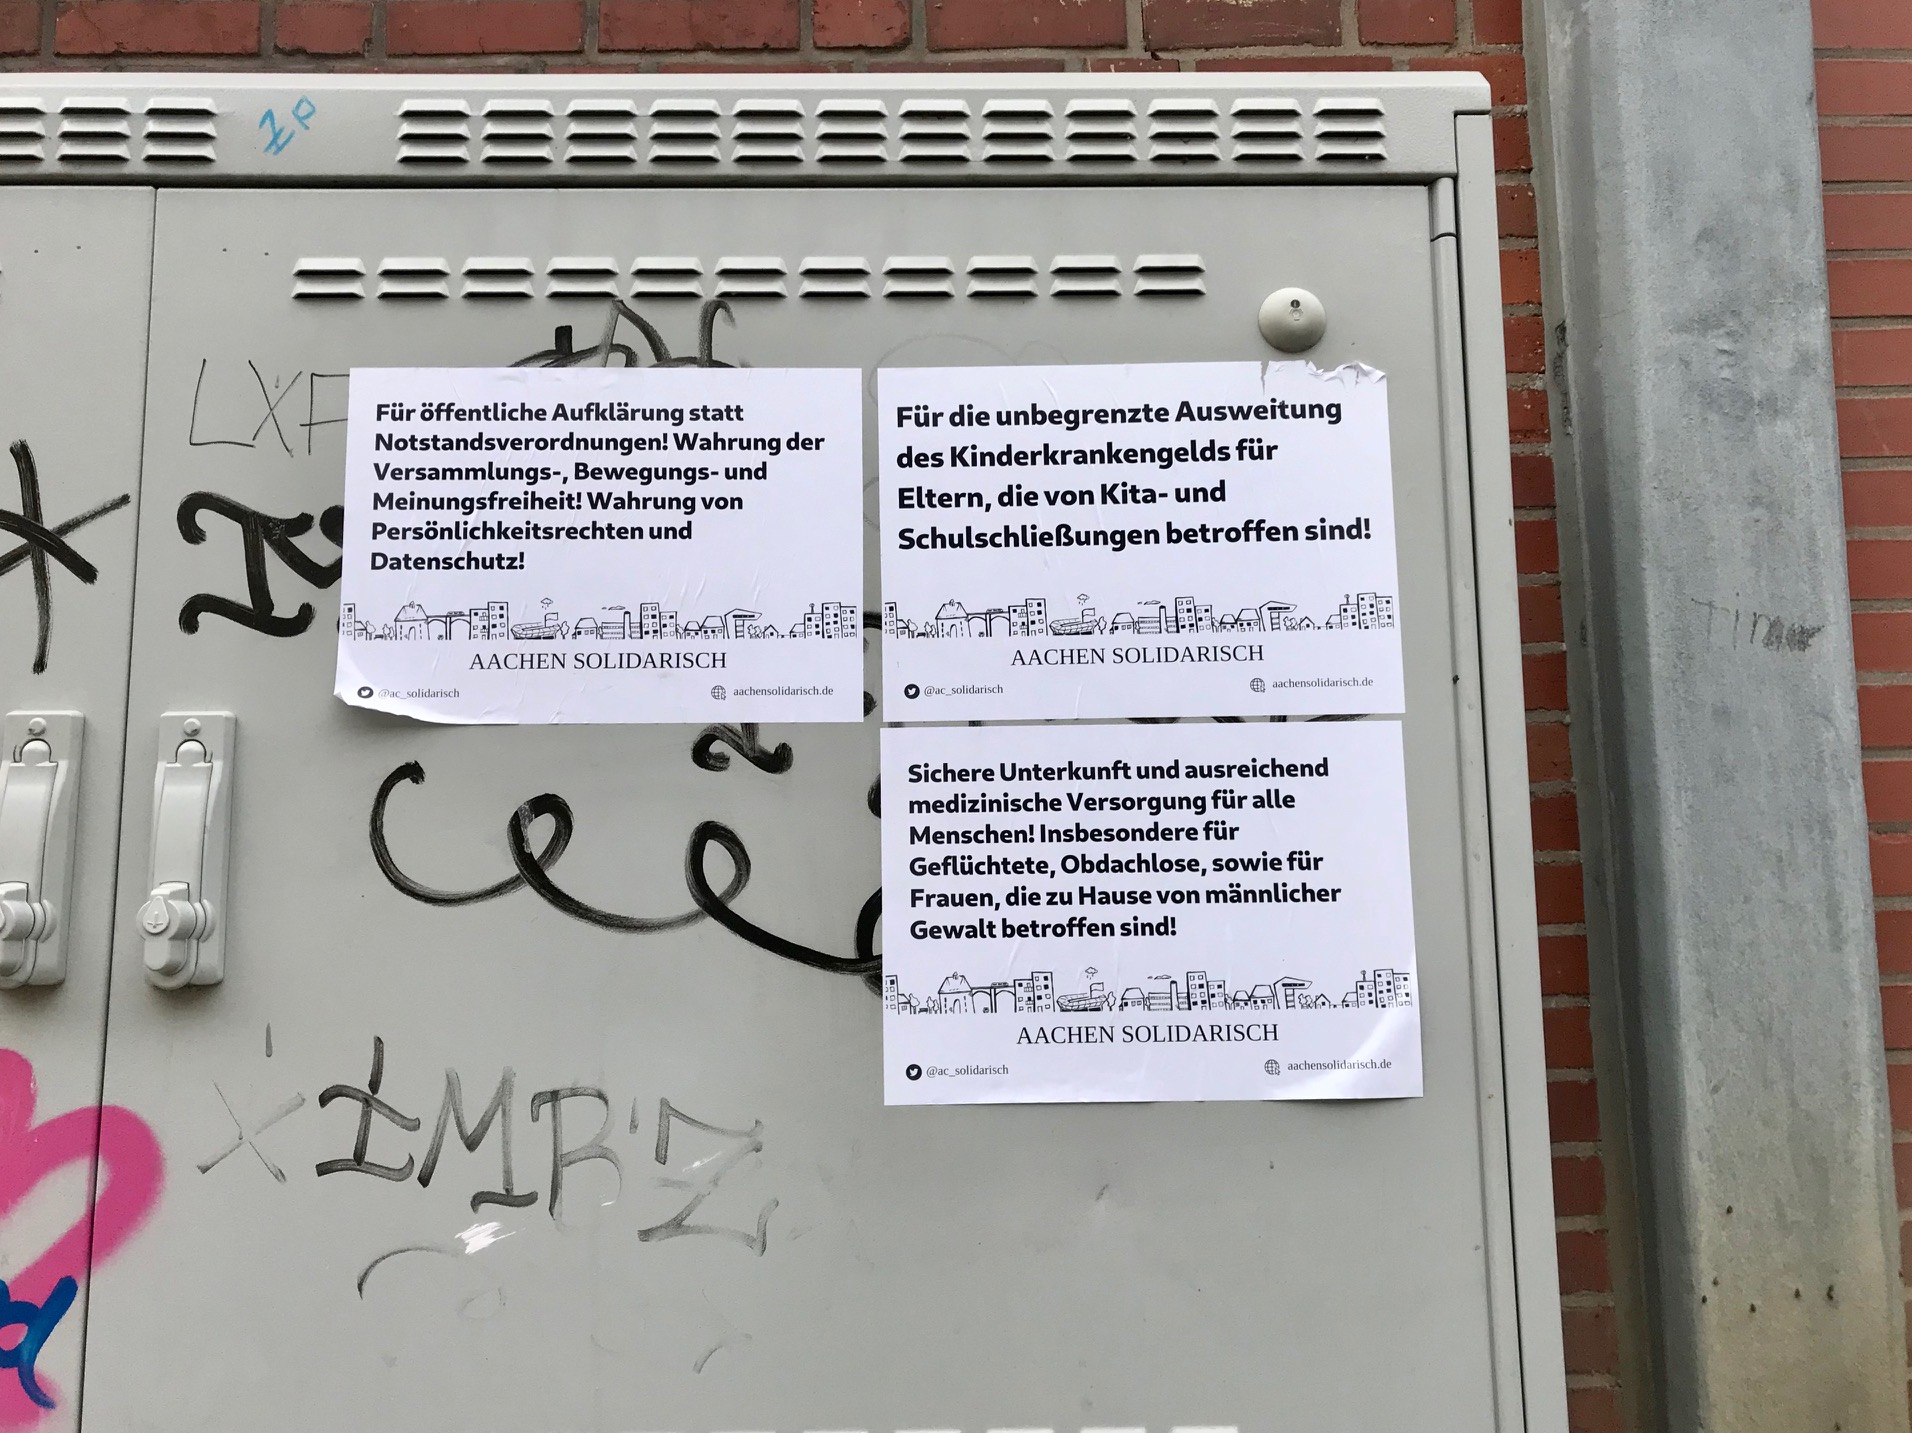 LXF
Für öffentliche Aufklärung statt
Notstandsverordnungen! Wahrung der
Versammlungs-, Bewegungs- und
Meinungsfreiheit! Wahrung von
Persönlichkeitsrechten und
Datenschutz!
AACHEN SOLIDARISCH
@ac_solidarisch
aachensolidarisch.de
Für die unbegrenzte Ausweitung
des Kinderkrankengelds für
Eltern, die von Kita- und
Schulschließungen betroffen sind!
AACHEN SOLIDARISCH
@ac_solidarisch
aachensolidarisch.de
Sichere Unterkunft und ausreichend
medizinische Versorgung für alle
Menschen! Insbesondere für
Geflüchtete, Obdachlose, sowie für
Frauen, die zu Hause von männlicher
Gewalt betroffen sind!
AACHEN SOLIDARISCH
@ac_solidarisch
aachensolidarisch.de